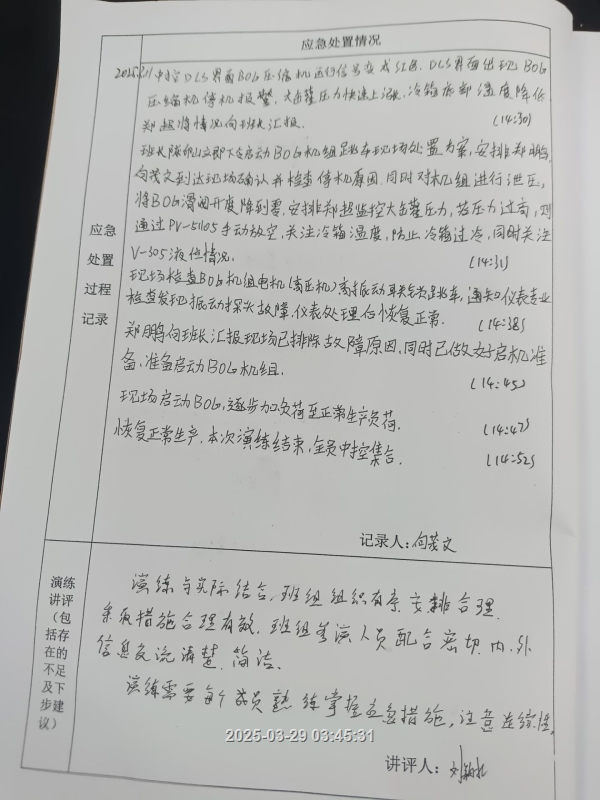 应急处置情况
中控DCS界面BOG压缩机运行信号变成红色,DCS界面出现BOG
压缩机停机报警,大罐压力快速上涨,冷箱底部温度降低
郑超将情况向班长汇报.
(14:30)
班长陈 立即下令启动BOG机组跳车现场处置方案,安排郑鹏
向茂文到达现场确认并检查停机原因,同时对机组进行泄压,
将BOG滑阀开度降到零,安排郑超监控大罐压力,若压力过高,则
通过PV-51105手动放空,关注冷箱温度,防止冷箱过冷,同时关注
V-305液位情况.
(14:31)
现场检查BOG机组电机(高压机)高振动联锁跳车,通知仪表专业
检查发现振动探头故障,仪表处理后恢复正常.
(14:38)
郑鹏向班长汇报现场已排除故障原因,同时已做好启机准
备,准备启动BOG机组.
(14:45)
现场启动BOG,逐步加负荷至正常生产负荷.
(14:47)
恢复正常生产.本次演练结束,全员中控集合.
(14:52)
应急
处置
过程
记录
记录人:向茂文
演练与实际结合,班组组织有序,安排合理.
采取措施合理有效.班组参演人员配合密切,内、外
信息交流清楚、简洁.
演练需要每个成员熟练掌握应急措施,注意连续性,
演练
讲评
(包
括存
在的
不足
及下
步建
议)
2025-03-29 03:45:31
讲评人:刘